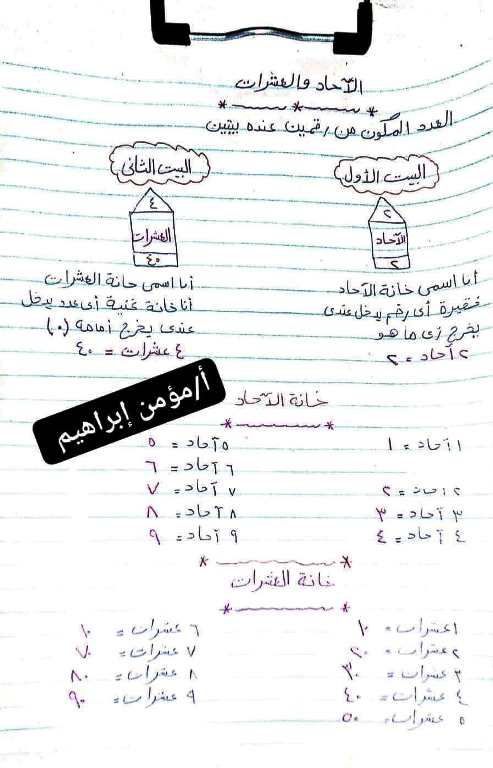 الآحاد والعشرات
العدد المكون من رقمين عنده بيتين
البيت الأول
٢
الآحاد
٢
أنا اسمى خانة الآحاد
فقيرة أى رقم يدخل عندى
يخرج زى ما هو
٢ آحاد = ٢
البيت الثانى
٤
العشرات
٤٠
أنا اسمى خانة العشرات
أنا خانة غنية أى عدد يدخل
عندى يخرج أمامه (٠)
٤ عشرات = ٤٠
أ/مؤمن إبراهيم
خانة الآحاد
١ آحاد = ١
٢ آحاد = ٢
٣ آحاد = ٣
٤ آحاد = ٤
٥ آحاد = ٥
٦ آحاد = ٦
٧ آحاد = ٧
٨ آحاد = ٨
٩ آحاد = ٩
خانة العشرات
١ عشرات = ١٠
٢ عشرات = ٢٠
٣ عشرات = ٣٠
٤ عشرات = ٤٠
٥ عشرات = ٥٠
٦ عشرات = ١٠
٧ عشرات = ٧٠
٨ عشرات = ٨٠
٩ عشرات = ٩٠